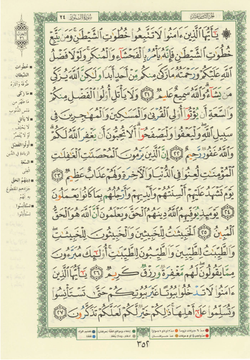 الجزء الثامن عشر
سورة النور ٢٤
۞ يَٰٓأَيُّهَا ٱلَّذِينَ ءَامَنُوا۟ لَا تَتَّبِعُوا۟ خُطُوَٰتِ ٱلشَّيْطَٰنِ وَمَن يَتَّبِعْ
خُطُوَٰتِ ٱلشَّيْطَٰنِ فَإِنَّهُۥ يَأْمُرُ بِٱلْفَحْشَآءِ وَٱلْمُنكَرِ وَلَوْلَا فَضْلُ
ٱللَّهِ عَلَيْكُمْ وَرَحْمَتُهُۥ مَا زَكَىٰ مِنكُم مِّنْ أَحَدٍ أَبَدًا وَلَٰكِنَّ ٱللَّهَ يُزَكِّى
مَن يَشَآءُ وَٱللَّهُ سَمِيعٌ عَلِيمٌ ٢١ وَلَا يَأْتَلِ أُو۟لُوا۟ ٱلْفَضْلِ مِنكُمْ
وَٱلسَّعَةِ أَن يُؤْتُوٓا۟ أُو۟لِى ٱلْقُرْبَىٰ وَٱلْمَسَٰكِينَ وَٱلْمُهَٰجِرِينَ فِى
سَبِيلِ ٱللَّهِ وَلْيَعْفُوا۟ وَلْيَصْفَحُوٓا۟ أَلَا تُحِبُّونَ أَن يَغْفِرَ ٱللَّهُ لَكُمْ
وَٱللَّهُ غَفُورٌ رَّحِيمٌ ٢٢ إِنَّ ٱلَّذِينَ يَرْمُونَ ٱلْمُحْصَنَٰتِ ٱلْغَٰفِلَٰتِ
ٱلْمُؤْمِنَٰتِ لُعِنُوا۟ فِى ٱلدُّنْيَا وَٱلْءَاخِرَةِ وَلَهُمْ عَذَابٌ عَظِيمٌ ٢٣
يَوْمَ تَشْهَدُ عَلَيْهِمْ أَلْسِنَتُهُمْ وَأَيْدِيهِمْ وَأَرْجُلُهُم بِمَا كَانُوا۟ يَعْمَلُونَ
٢٤ يَوْمَئِذٍ يُوَفِّيهِمُ ٱللَّهُ دِينَهُمُ ٱلْحَقَّ وَيَعْلَمُونَ أَنَّ ٱللَّهَ هُوَ ٱلْحَقُّ
ٱلْمُبِينُ ٢٥ ٱلْخَبِيثَٰتُ لِلْخَبِيثِينَ وَٱلْخَبِيثُونَ لِلْخَبِيثَٰتِ
وَٱلطَّيِّبَٰتُ لِلطَّيِّبِينَ وَٱلطَّيِّبُونَ لِلطَّيِّبَٰتِ أُو۟لَٰٓئِكَ مُبَرَّءُونَ
مِمَّا يَقُولُونَ لَهُم مَّغْفِرَةٌ وَرِزْقٌ كَرِيمٌ ٢٦ يَٰٓأَيُّهَا ٱلَّذِينَ
ءَامَنُوا۟ لَا تَدْخُلُوا۟ بُيُوتًا غَيْرَ بُيُوتِكُمْ حَتَّىٰ تَسْتَأْنِسُوا۟
وَتُسَلِّمُوا۟ عَلَىٰٓ أَهْلِهَا ذَٰلِكُمْ خَيْرٌ لَّكُمْ لَعَلَّكُمْ تَذَكَّرُونَ ٢٧
٣٥٢